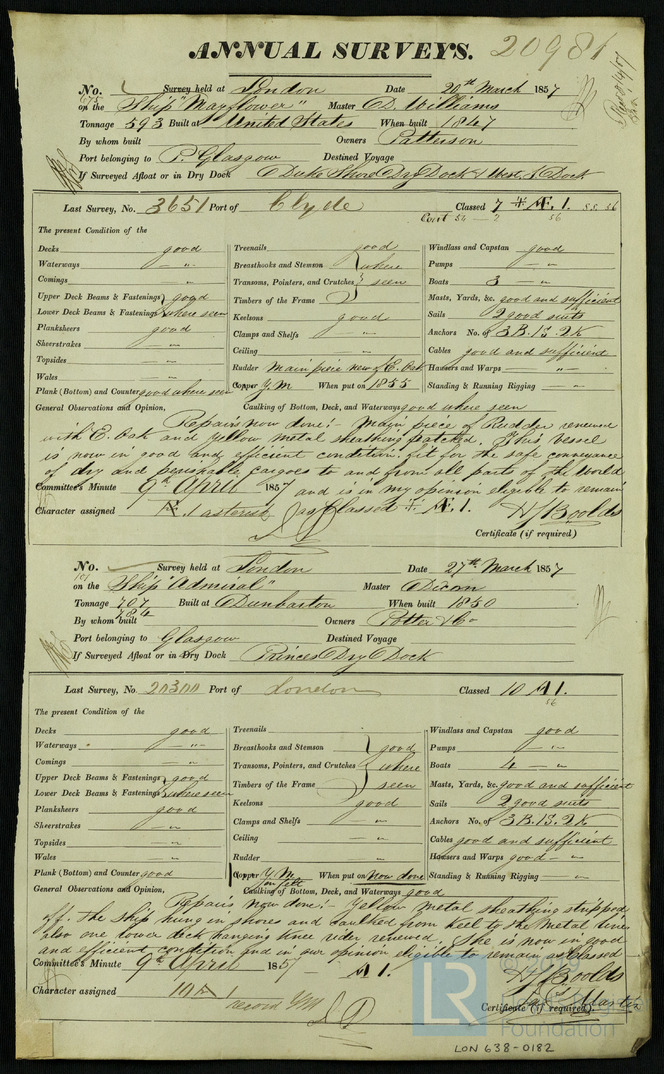 ANNUAL SURVEYS. 20981
No. Survey held at London Date 20th March 1857
675 on the Ship "Mayflower" Master D. Williams
Tonnage 593 Built at United States When built 1847
By whom built Owners Patterson
Port belonging to P. Glasgow Destined Voyage
If Surveyed Afloat or in Dry Dock Duke Shore Dry Dock & West I. Dock
Last Survey, No. 3651 Port of Clyde Classed 7 Æ. 1. 55. 56
Cont 54 — 2 56
The present Condition of the
Decks good
Waterways — "—
Comings — "—
Upper Deck Beams & Fastenings } good
Lower Deck Beams & Fastenings } where seen
Planksheers good
Sheerstrakes — "—
Topsides — "—
Wales — "—
Plank (Bottom) and Counter good where seen
Treenails good
Breasthooks and Stemson } where
Transoms, Pointers, and Crutches } seen
Timbers of the Frame
Keelsons good
Clamps and Shelfs — "—
Ceiling — "—
Rudder Main piece new of E. Oak
Copper Y.M When put on 1855
Windlass and Capstan good
Pumps — "—
Boats 3 — "—
Masts, Yards, &c. good and sufficient
Sails 2 good suits
Anchors No. of 3 B. 1 S. 2 K
Cables good and sufficient
Hawsers and Warps — "—
Standing & Running Rigging — "—
General Observations and Opinion, Caulking of Bottom, Deck, and Waterways good where seen
Repairs now done:- Main piece of Rudder renewed
with E. Oak and yellow metal sheathing patched. This vessel
is now in good and efficient condition fit for the safe conveyance
of dry and perishable cargoes to and from all parts of the World
Committee's Minute 9th April 1857 and is in my opinion eligible to remain
Character assigned Æ. 1 asterisk as classed Æ. 1. H J Boolds
Certificate (if required)
No. Survey held at London Date 27th March 1857
101 on the Ship "Admiral" Master Dixon
Tonnage 707 Built at Dunbarton When built 1850
784
By whom built Owners Potter & Co
Port belonging to Glasgow Destined Voyage
If Surveyed Afloat or in Dry Dock Princes Dry Dock
Last Survey, No. 20300 Port of London Classed 10 A 1.
56
The present Condition of the
Decks good
Waterways — "—
Comings — "—
Upper Deck Beams & Fastenings } good
Lower Deck Beams & Fastenings } where seen
Planksheers good
Sheerstrakes — "—
Topsides — "—
Wales — "—
Plank (Bottom) and Counter good
Treenails
Breasthooks and Stemson } good
Transoms, Pointers, and Crutches } where
Timbers of the Frame } seen
Keelsons good
Clamps and Shelfs — "—
Ceiling — "—
Rudder — "—
Copper Y.M When put on now done
on felt
Windlass and Capstan good
Pumps — "—
Boats 4 — "—
Masts, Yards, &c. good and sufficient
Sails 2 good suits
Anchors No. of 3 B. 1 S. 2 K
Cables good and sufficient
Hawsers and Warps good — "—
Standing & Running Rigging — "—
General Observations and Opinion, Caulking of Bottom, Deck, and Waterways good
Repairs now done:- Yellow metal sheathing stripped
off. The Ship hung in shores and caulked from keel to the Metal line
also one lower deck hanging knee rider renewed. She is now in good
and efficient condition and in our opinion eligible to remain as classed
Committee's Minute 9th April 1857 A 1. H J Boolds
Character assigned 10 A 1 Martin
record YM Certificate (if required)
LR Foundation
LON 638-0182